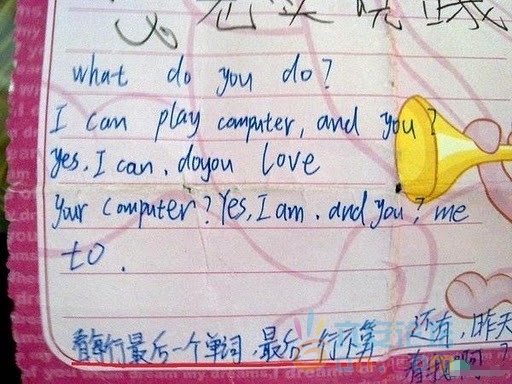 what do you do?
I can play computer, and you?
Yes, I can. doyou love
your computer? Yes, I am. and you? me
to.
看每行最后一个单词.最后一行不算 还有,昨天